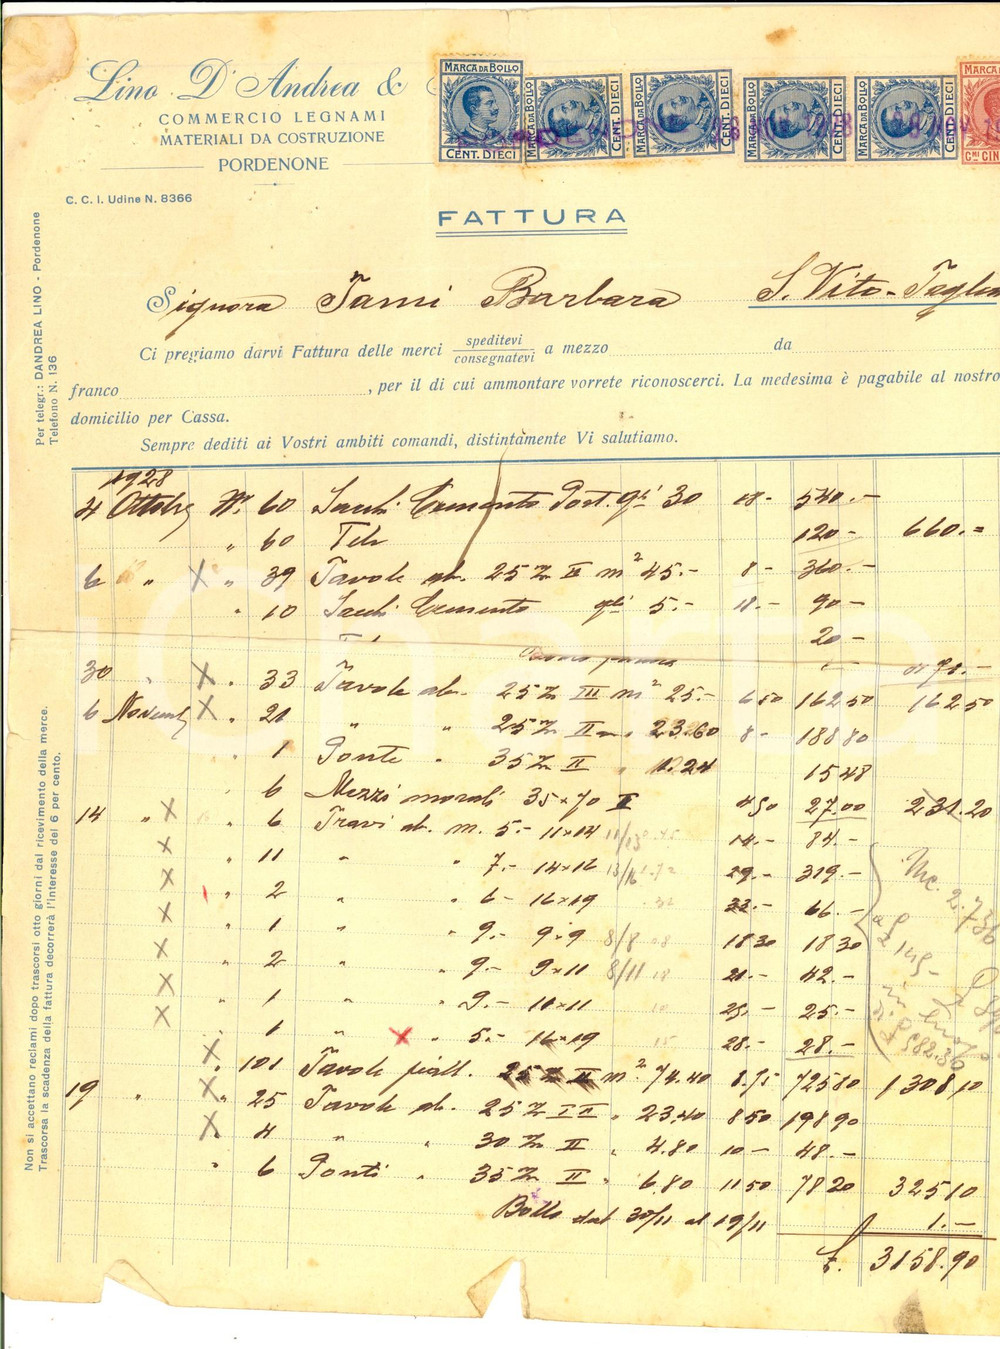 Lino D'Andrea &
COMMERCIO LEGNAMI
MATERIALI DA COSTRUZIONE
PORDENONE
C. C. I. Udine N. 8366
MARCA DA BOLLO
CENT. DIECI
MARCA DA BOLLO CENT. DIECI
MARCA DA BOLLO CENT. DIECI
MARCA DA BOLLO CENT. DIECI
MARCA DA BOLLO CENT. DIECI
MARCA D
C.MI CIN
FATTURA
Per telegr.: DANDREA LINO - Pordenone
Telefono N. 136
Signora Tami Barbara S. Vito - Taglia
Ci pregiamo darvi Fattura delle merci speditevi consegnatevi a mezzo da
franco , per il di cui ammontare vorrete riconoscerci. La medesima è pagabile al nostro
domicilio per Cassa.
Sempre dediti ai Vostri ambiti comandi, distintamente Vi salutiamo.
1928
4 Ottobre N. 60 Sacchi Cemento Port. qli 30 18- 540.-
" 60 Tele 120- 660.=
6 " X " 39 Tavole ab. 25 II m2 45.- 8- 360.-
" 10 Sacchi Cemento qli 5.- 18.- 90-
20-
30 " X " 33 Tavole ab. 25 III m2 25.- 6.50 162 50 162 50
6 Novemb X " 21 " " 25 II 23.60 8- 188 80
" 1 Ponte " 35 II " 1.24 15 48
6 Mezzi morali 35×70 II 4 50 27.00 231.20
14 " X " 6 Travi ab. m. 5.- 11×14 14.- 84.-
X " 11 " " 7.- 14×16 29.- 319.-
X " 2 " " 6- 16×19 33.- 66.-
X " 1 " " 9.- 9×9 8/8 18 30 18 30
X " 2 " " 9.- 9×11 8/11 21.- 42.-
X " 1 " " 9.- 11×11 25.- 25.-
X " 1 " X " 5.- 16×19 28.- 28.-
X " 101 Tavole piall. 25 II m2 74.40 8.75 725 80 1308,10
19 " X " 25 Tavole ab. 25 III " 23.40 8 50 198 90
X " 4 " " 30 II " 4.80 10- 48.-
" 6 Ponti " 35 II " 6.80 11 50 78 20 325 10
Bollo dal 30/11 al 19/11 1.-
£. 3158.90
Mc. 2.736
Non si accettano reclami dopo trascorsi otto giorni dal ricevimento della merce.
Trascorsa la scadenza della fattura decorrerà l'interesse del 6 per cento.